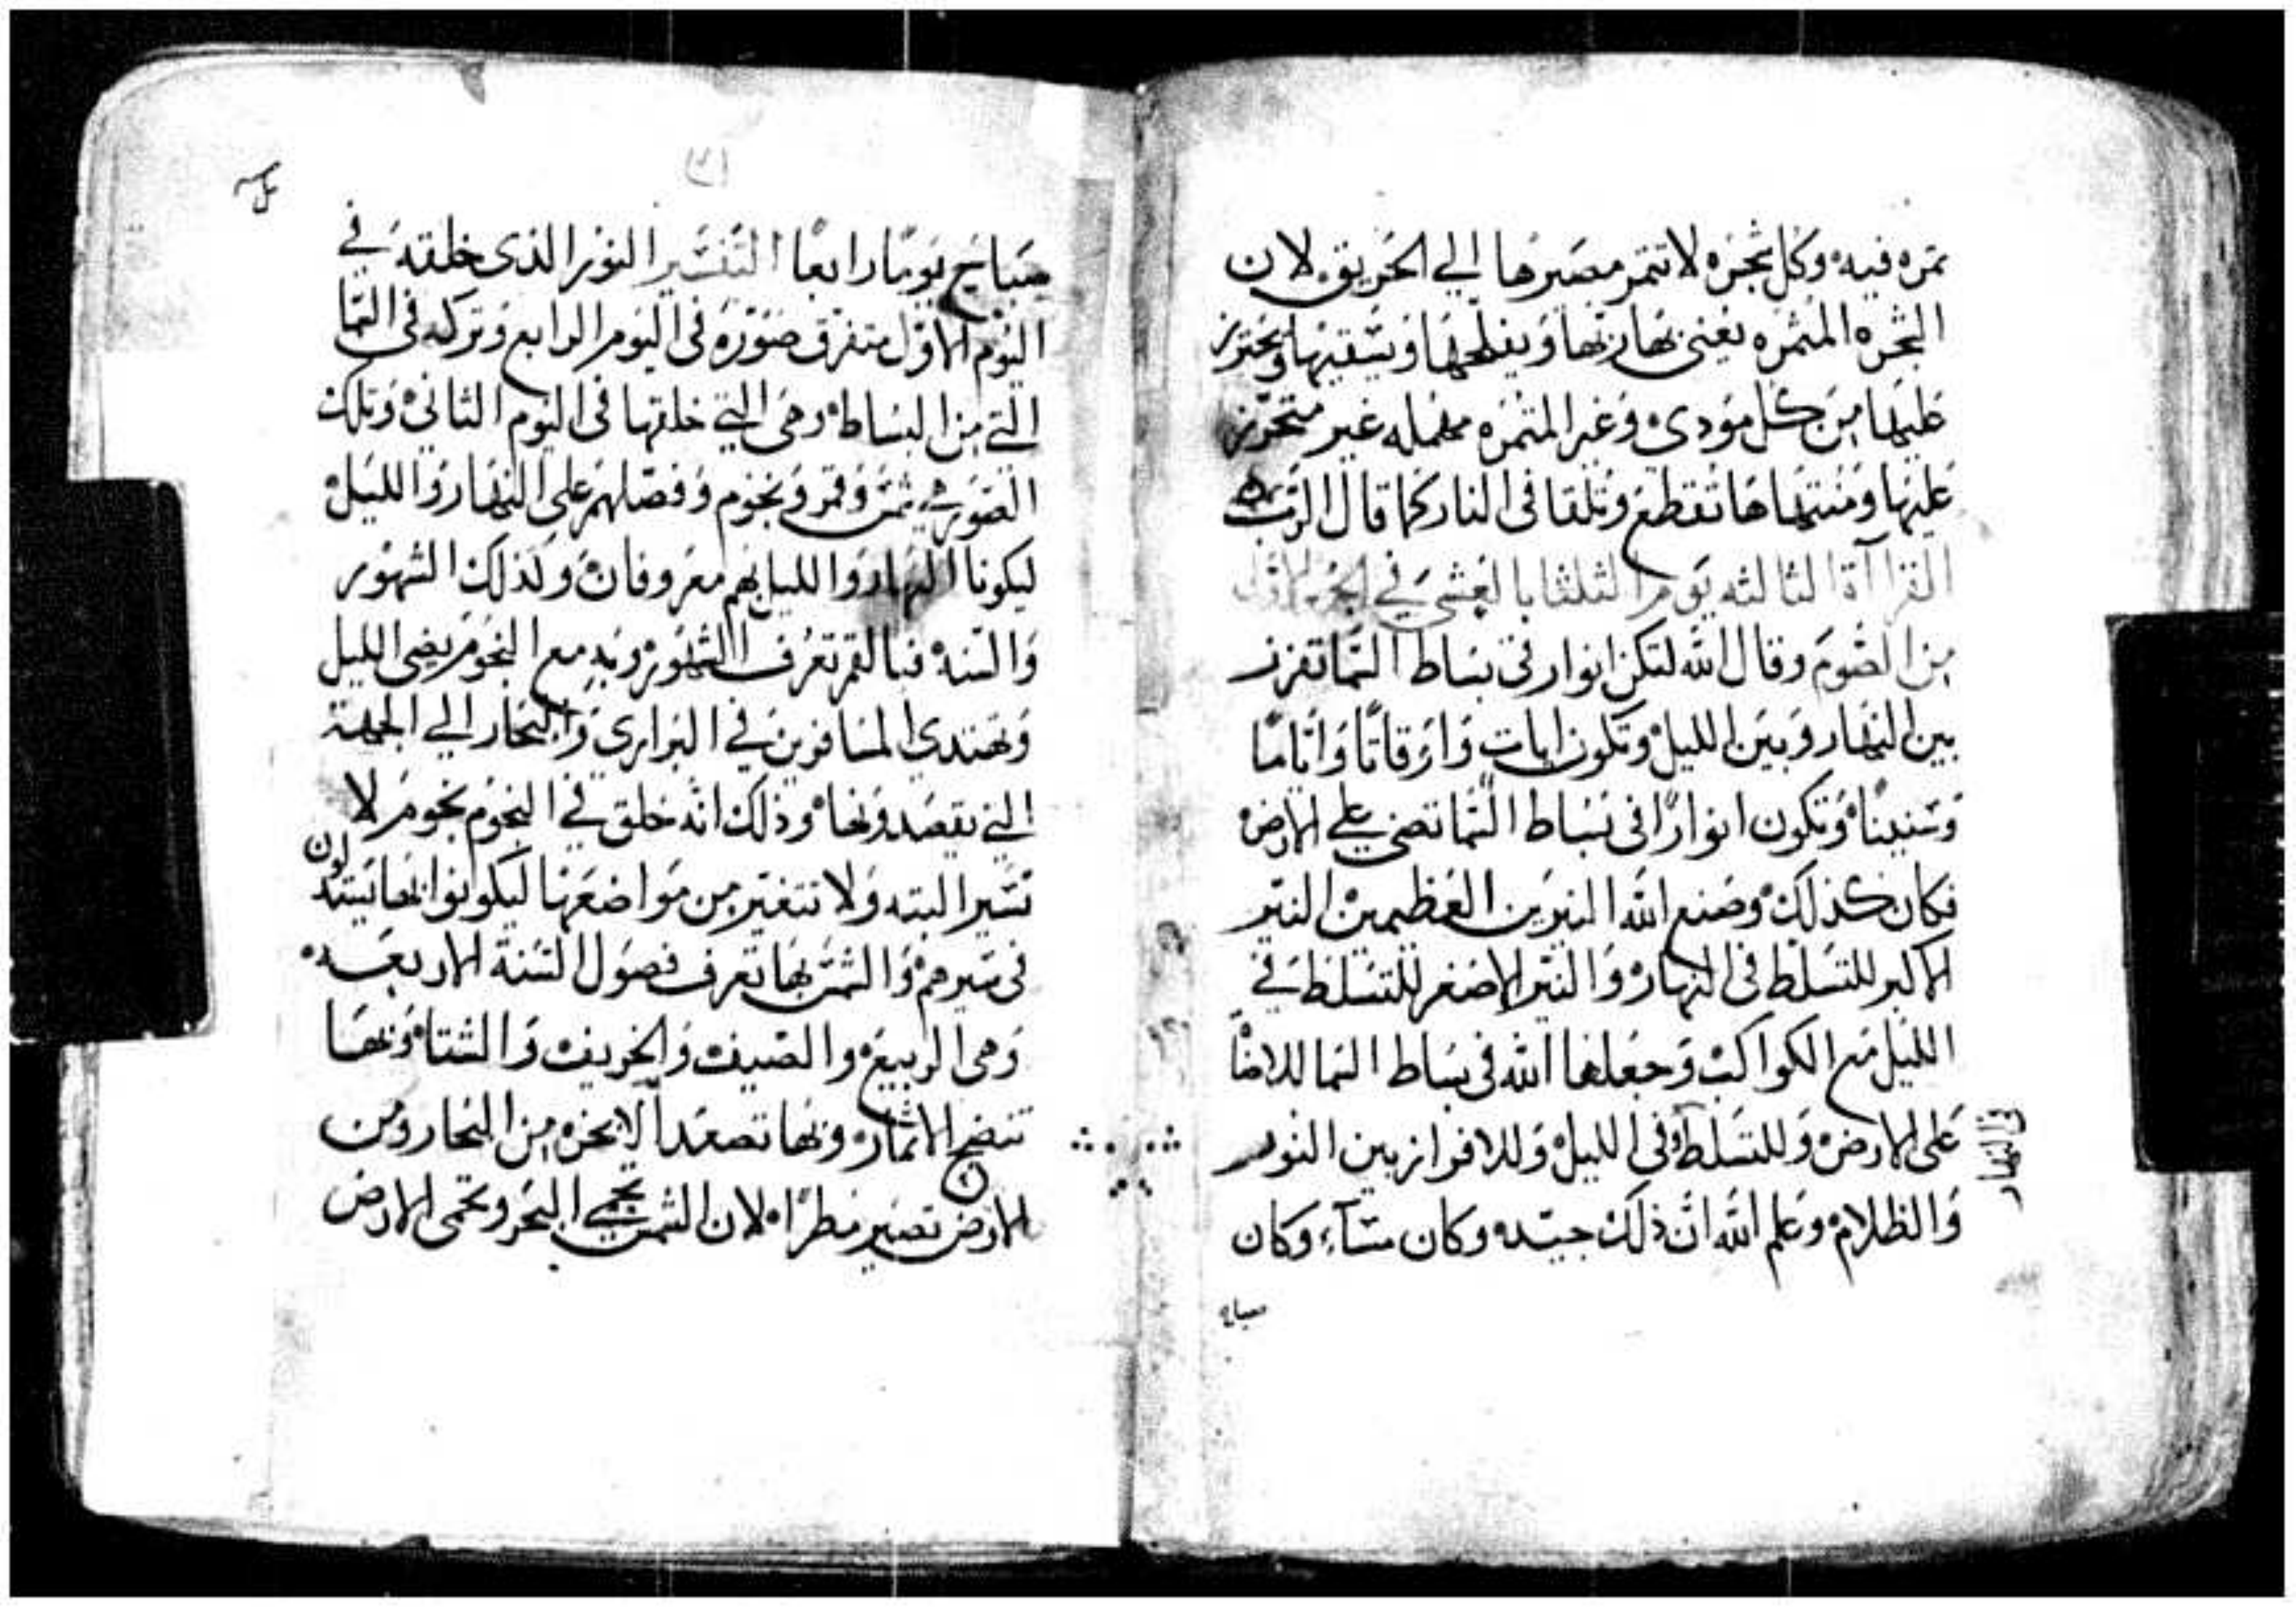 ثمره فيه وكل شجره لا تثمر مصيرها الي الحريق لان
الشجره المثمره يعني بها ربها ويفلحها ويسقيها ويحترز
عليها من كل مودي وغير المثمره مهمله غير متحرز
عليها ومنتهاها تقطع وتلقا في النار كما قال الرب
القراآة الثالثه يوم الثلثا بالعشي في الجمعه الاولي
من الصوم وقال الله لتكن انوار في بساط السما تفرز
بين النهار وبين الليل وتكون ايات واوقاتا واياما
وسنينا وتكون انوارا في بساط السما تضي علي الارض
فكان كذلك وصنع الله النيرين العظيمين النير
الاكبر للتسلط في النهار والنير الاصغر للتسلط في
الليل مع الكواكب وجعلها الله في بساط السما للاضا
على الارض وللتسلط وفي الليل وللافراز بين النور
في النهار
والظلام وعلم الله ان ذلك جيده وكان مسآء وكان
صباح
صباح يوما رابعا التفسير النور الذي خلقه في
اليوم الاول متفرق صوره في اليوم الرابع وتركه في السما
التي من البساط وهي التي خلقها في اليوم الثاني وتلك
الصور هي شمس وقمر ونجوم وفصلهم على النهار والليل
ليكونا النهار والليل بهم معروفان ولذلك الشهور
والسنه فبالقمر تعرف الشهور وبه مع النجوم يضي الليل
ويهتدي المسافرين في البراري والبحار الي الجهة
التي يقصدونها وذلك انه خلق في النجوم نجوم لا
تسير البته ولا تتغير من مواضعها ليكونوا بها يستدلون
في سيرهم والشمس بها تعرف فصول السنة الاربعه
وهي الربيع والصيف والخريف والشتا وبها
تنضج الاثمار وبها تصعد الابخره من البحار ومن
الارض تصير مطرا لان الشمس تحمي البحر وتحمى الارض